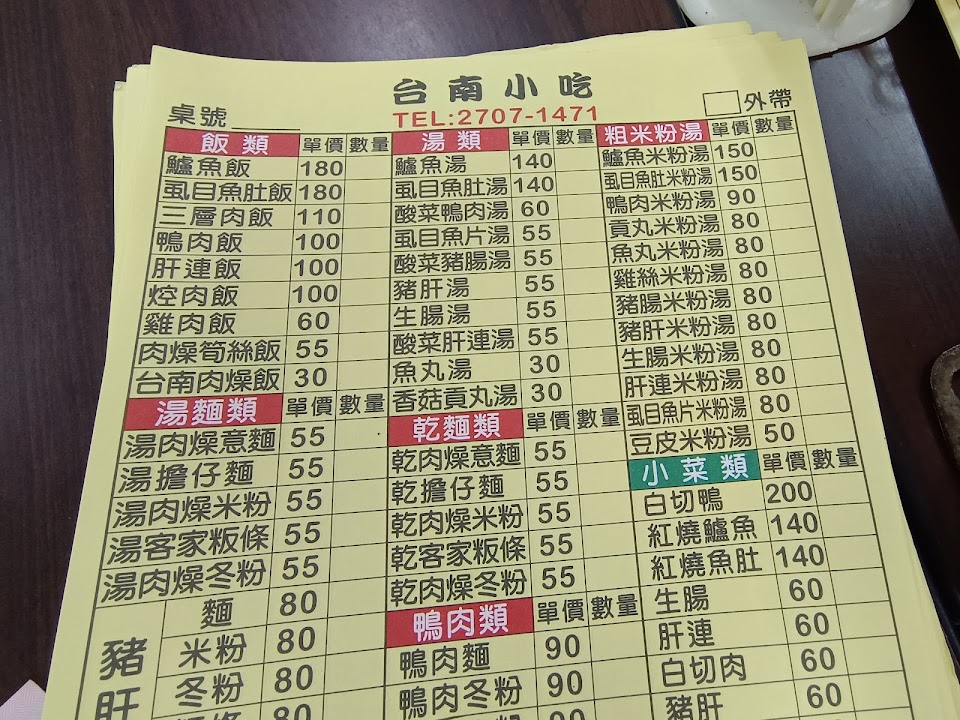 台南小吃
桌號
TEL:2707-1471
外帶
飯類 單價 數量
鱸魚飯 180
虱目魚肚飯 180
三層肉飯 110
鴨肉飯 100
肝連飯 100
焢肉飯 100
雞肉飯 60
肉燥筍絲飯 55
台南肉燥飯 30
湯麵類 單價 數量
湯肉燥意麵 55
湯擔仔麵 55
湯肉燥米粉 55
湯客家粄條 55
湯肉燥冬粉 55
豬肝
麵 80
米粉 80
冬粉 80
粄條 80
湯類 單價 數量
鱸魚湯 140
虱目魚肚湯 140
酸菜鴨肉湯 60
虱目魚片湯 55
酸菜豬腸湯 55
豬肝湯 55
生腸湯 55
酸菜肝連湯 55
魚丸湯 30
香菇貢丸湯 30
乾麵類 單價 數量
乾肉燥意麵 55
乾擔仔麵 55
乾肉燥米粉 55
乾客家粄條 55
乾肉燥冬粉 55
鴨肉類 單價 數量
鴨肉麵 90
鴨肉冬粉 90
粗米粉湯 單價 數量
鱸魚米粉湯 150
虱目魚肚米粉湯 150
鴨肉米粉湯 90
貢丸米粉湯 80
魚丸米粉湯 80
雞絲米粉湯 80
豬腸米粉湯 80
豬肝米粉湯 80
生腸米粉湯 80
肝連米粉湯 80
虱目魚片米粉湯 80
豆皮米粉湯 50
小菜類 單價 數量
白切鴨 200
紅燒鱸魚 140
紅燒魚肚 140
生腸 60
肝連 60
白切肉 60
豬肝 60